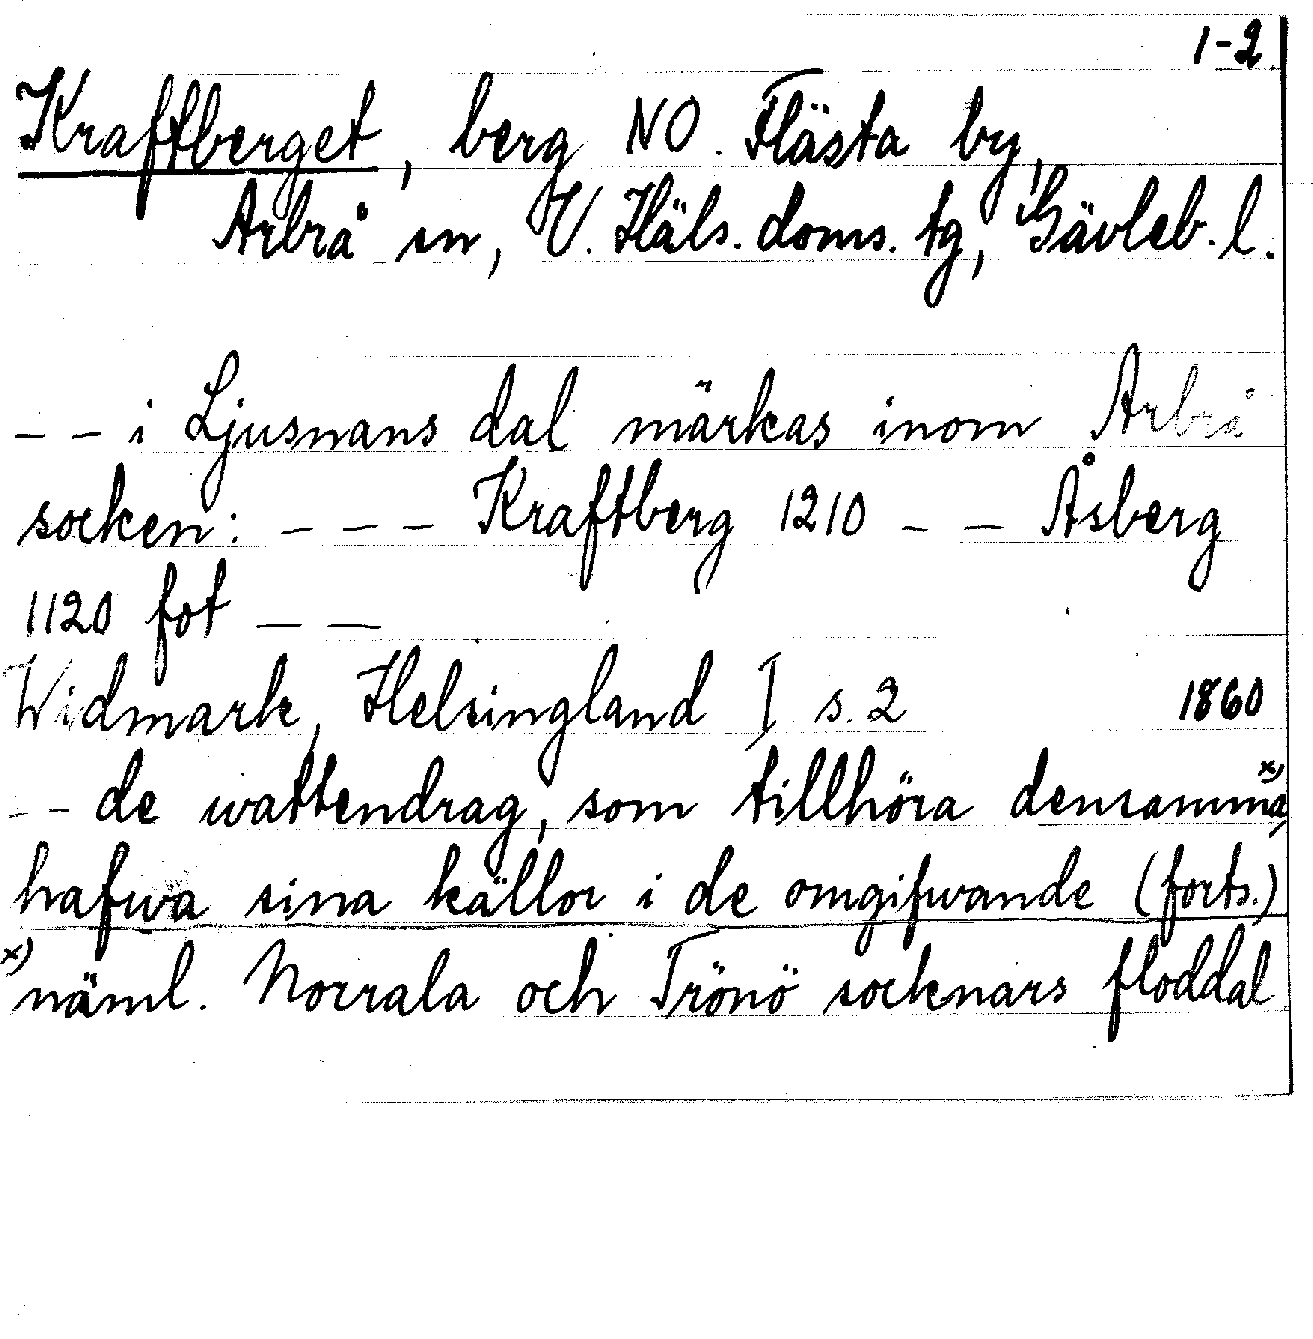 1-2
Kraftberget, berg NO. Flästa by,
Arbrå sn, V. Häls. doms. tg, Gävleb. l.
– – i Ljusnans dal märkas inom Arbrå
socken: – – – Kraftberg 1210 – – Åsberg
1120 fot – –
Widmark, Helsingland I s. 2 1860
– – de wattendrag, som tillhöra densamma x)
hafwa sina källor i de omgifwande (forts.)
x) näml. Norrala och Trönö socknars floddal